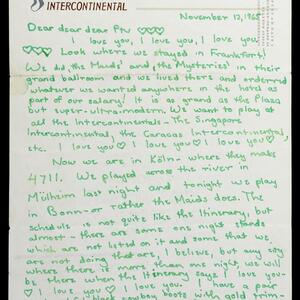 INTERCONTINENTAL
November 12, 1965
Dear dear dear Pty ♡♡♡
I love you, I love you, I love you,
♡♡♡ Look where we stayed in Frankfurt!
We did, the Maids' and the Mysteries' in their
grand ballroom and we lived there and ordered
whatever we wanted anywhere in the hotel as
part of our salary! It is as grand as the Plaza
but super-ultra-modern. We want to play at
all the Intercontinentals - The Singapore
Intercontinental, the Caracas Intercontinental,
etc. I love you ♡ I love you ♡ I love you ♡
Now we are in Köln - where they make
4711. We played across the river in
Mülheim last night and tonight we play
in Bonn - or rather the Maids does. The
schedule is not quite like the Itinerary, but
almost - there are some one night stands
which are not listed on it and some that we
are not doing that are, I believe, but any way
where there is more than one night, we will
be there when the Itinerary says I love you -
♡ I love you ♡ I love you. I have a pair
black cowboy boots with gold trim -